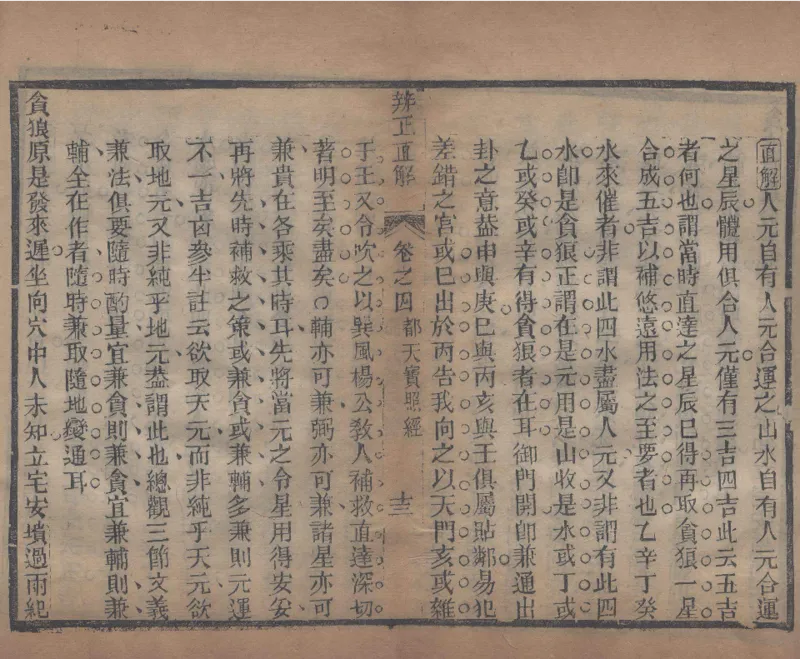 直解人元自有人元合運之山水自有人元合運
之星辰體用俱合人元僅有三吉四吉此云五吉
者何也謂當時直達之星辰巳得再取貪狼一星
合成五吉以補悠遠用法之至要者也乙辛丁癸
水來催者非謂此四水盡屬人元又非謂有此四
水卽是貪狼正謂在是元用是山收是水或丁或
乙或癸或辛有得貪狼者在耳御門開卽兼通出
卦之意葢申與庚巳與丙亥與壬俱屬貼鄰易犯
差錯之宫或巳出於丙告我向之以天門亥或雜
辨正直解
卷之四
都天寶照經
十三
于壬又令吹之以巽風楊公敎人補救直達深切
著明至矣盡矣○輔亦可兼弼亦可兼諸星亦可
兼貴在各乘其時耳先將當元之令星用得安妥
再將先時補救之策或兼貪或兼輔多兼則元運
不一吉凶參半註云欲取天元而非純乎天元欲
取地元又非純乎地元葢謂此也總觀三節文義
兼法俱要隨時酌量宜兼貪則兼貪宜兼輔則兼
輔全在作者隨時兼取隨地變通耳
貪狼原是發來遲坐向穴中人未知立宅安墳過兩紀